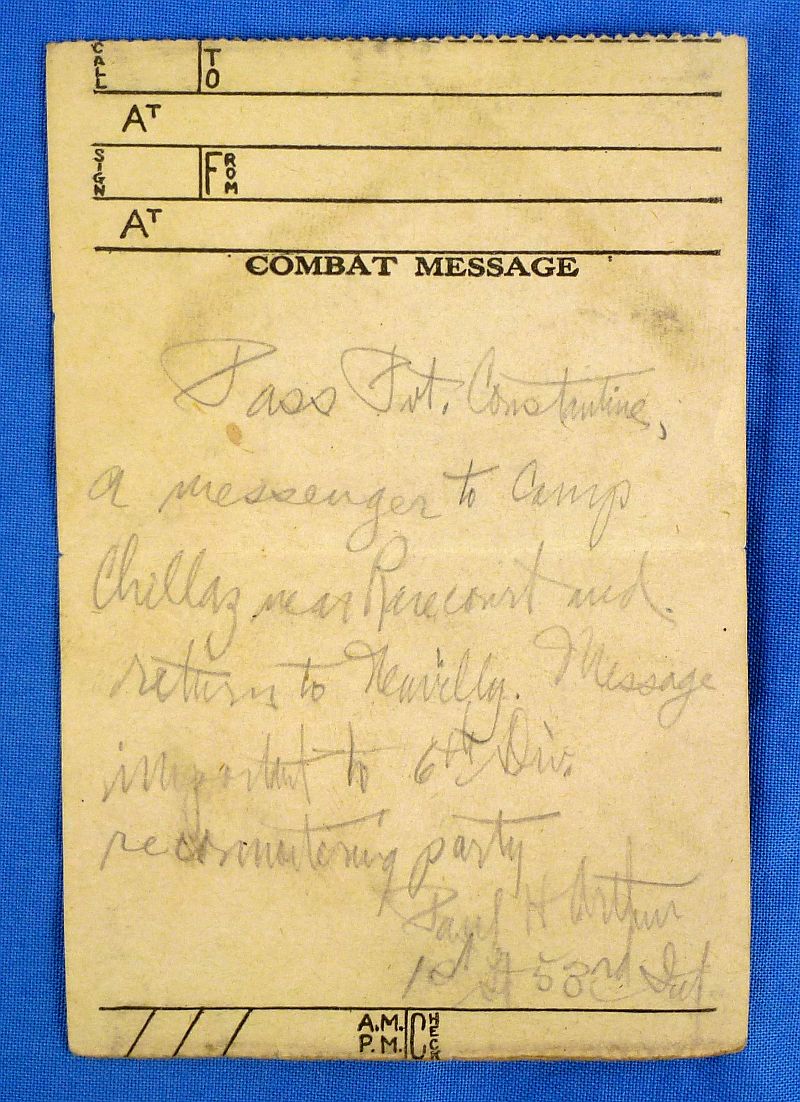 CALL TO
AT
SIGN FROM
AT
COMBAT MESSAGE
Pass Pvt. Constantine,
a messenger to Camp
Chillaz near Rarecourt and
return to Neuvilly. Message
important to 6th Div.
reconnoitering party
Paul H Arthur
1st Lt 53rd Inf
/ / / A.M. P.M. CHECK